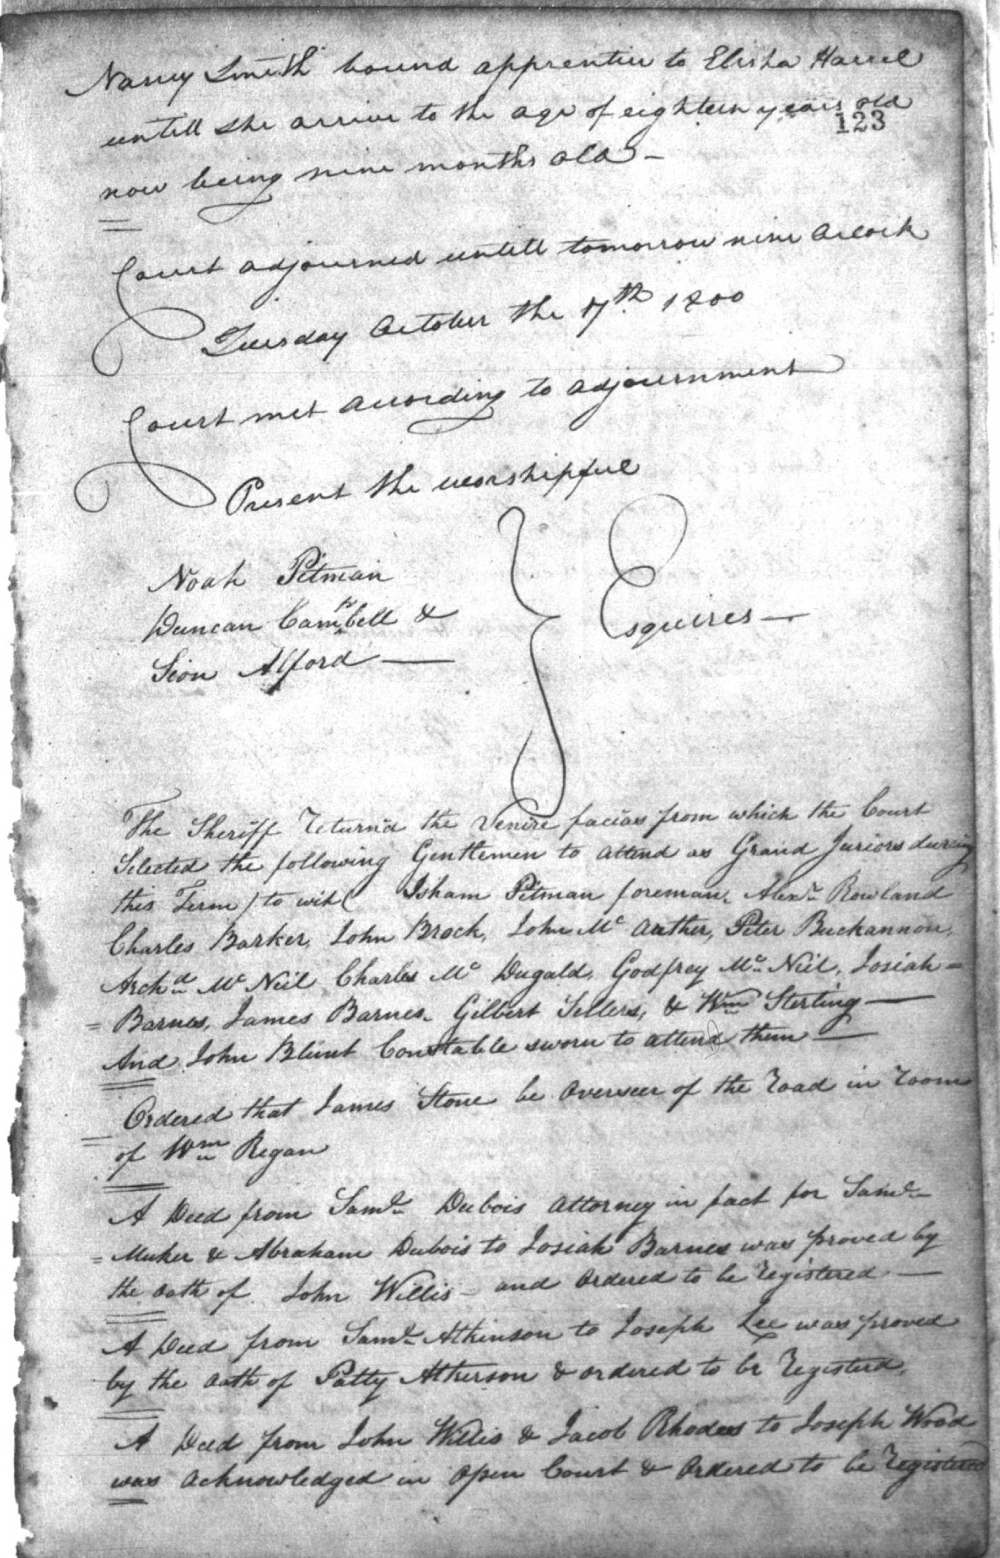 Nancy Smith bound apprentice to Elisha Harrel
untill she arrive to the age of eighteen years old
123
now being nine months old –
Court adjourned untill tomorrow nine Oclock
Tuesday October the 17th 1800
Court met according to adjournment
Present the worshipfull
Noah Pitman
Duncan Campbell &
Sion Alford —
Esquires —
The Sheriff Returnd the Venire facias from which the Court
Selected the following Gentlemen to attend as Grand Juriors during
this Term / to wit ( Isham Pitman foreman, Alexr Rowland
Charles Barker, John Brock, John Mc Arther, Peter Buckannon,
Archd Mc Neil Charles Mc Dugald, Godfrey Mc Neil, Josiah =
= Barnes, James Barnes, Gilbert Sellers, & Wm Sterling —
And John Blunt Constable sworn to attend them —
Ordered that James Stone be Overseer of the Road in Room
= of Wm Regan
A Deed from Saml Dubois attorney in fact for Saml
= Meeker & Abraham Dubois to Josiah Barnes was proved by
the oath of John Willis – and Ordered to be Registered —
A Deed from Saml Atkinson to Joseph Lee was proved
by the oath of Patty Atkerson & ordered to be Registerd.
A Deed from John Willis & Jacob Rhodes to Joseph Wood
was acknowledged in Open Court & Ordered to be Registered